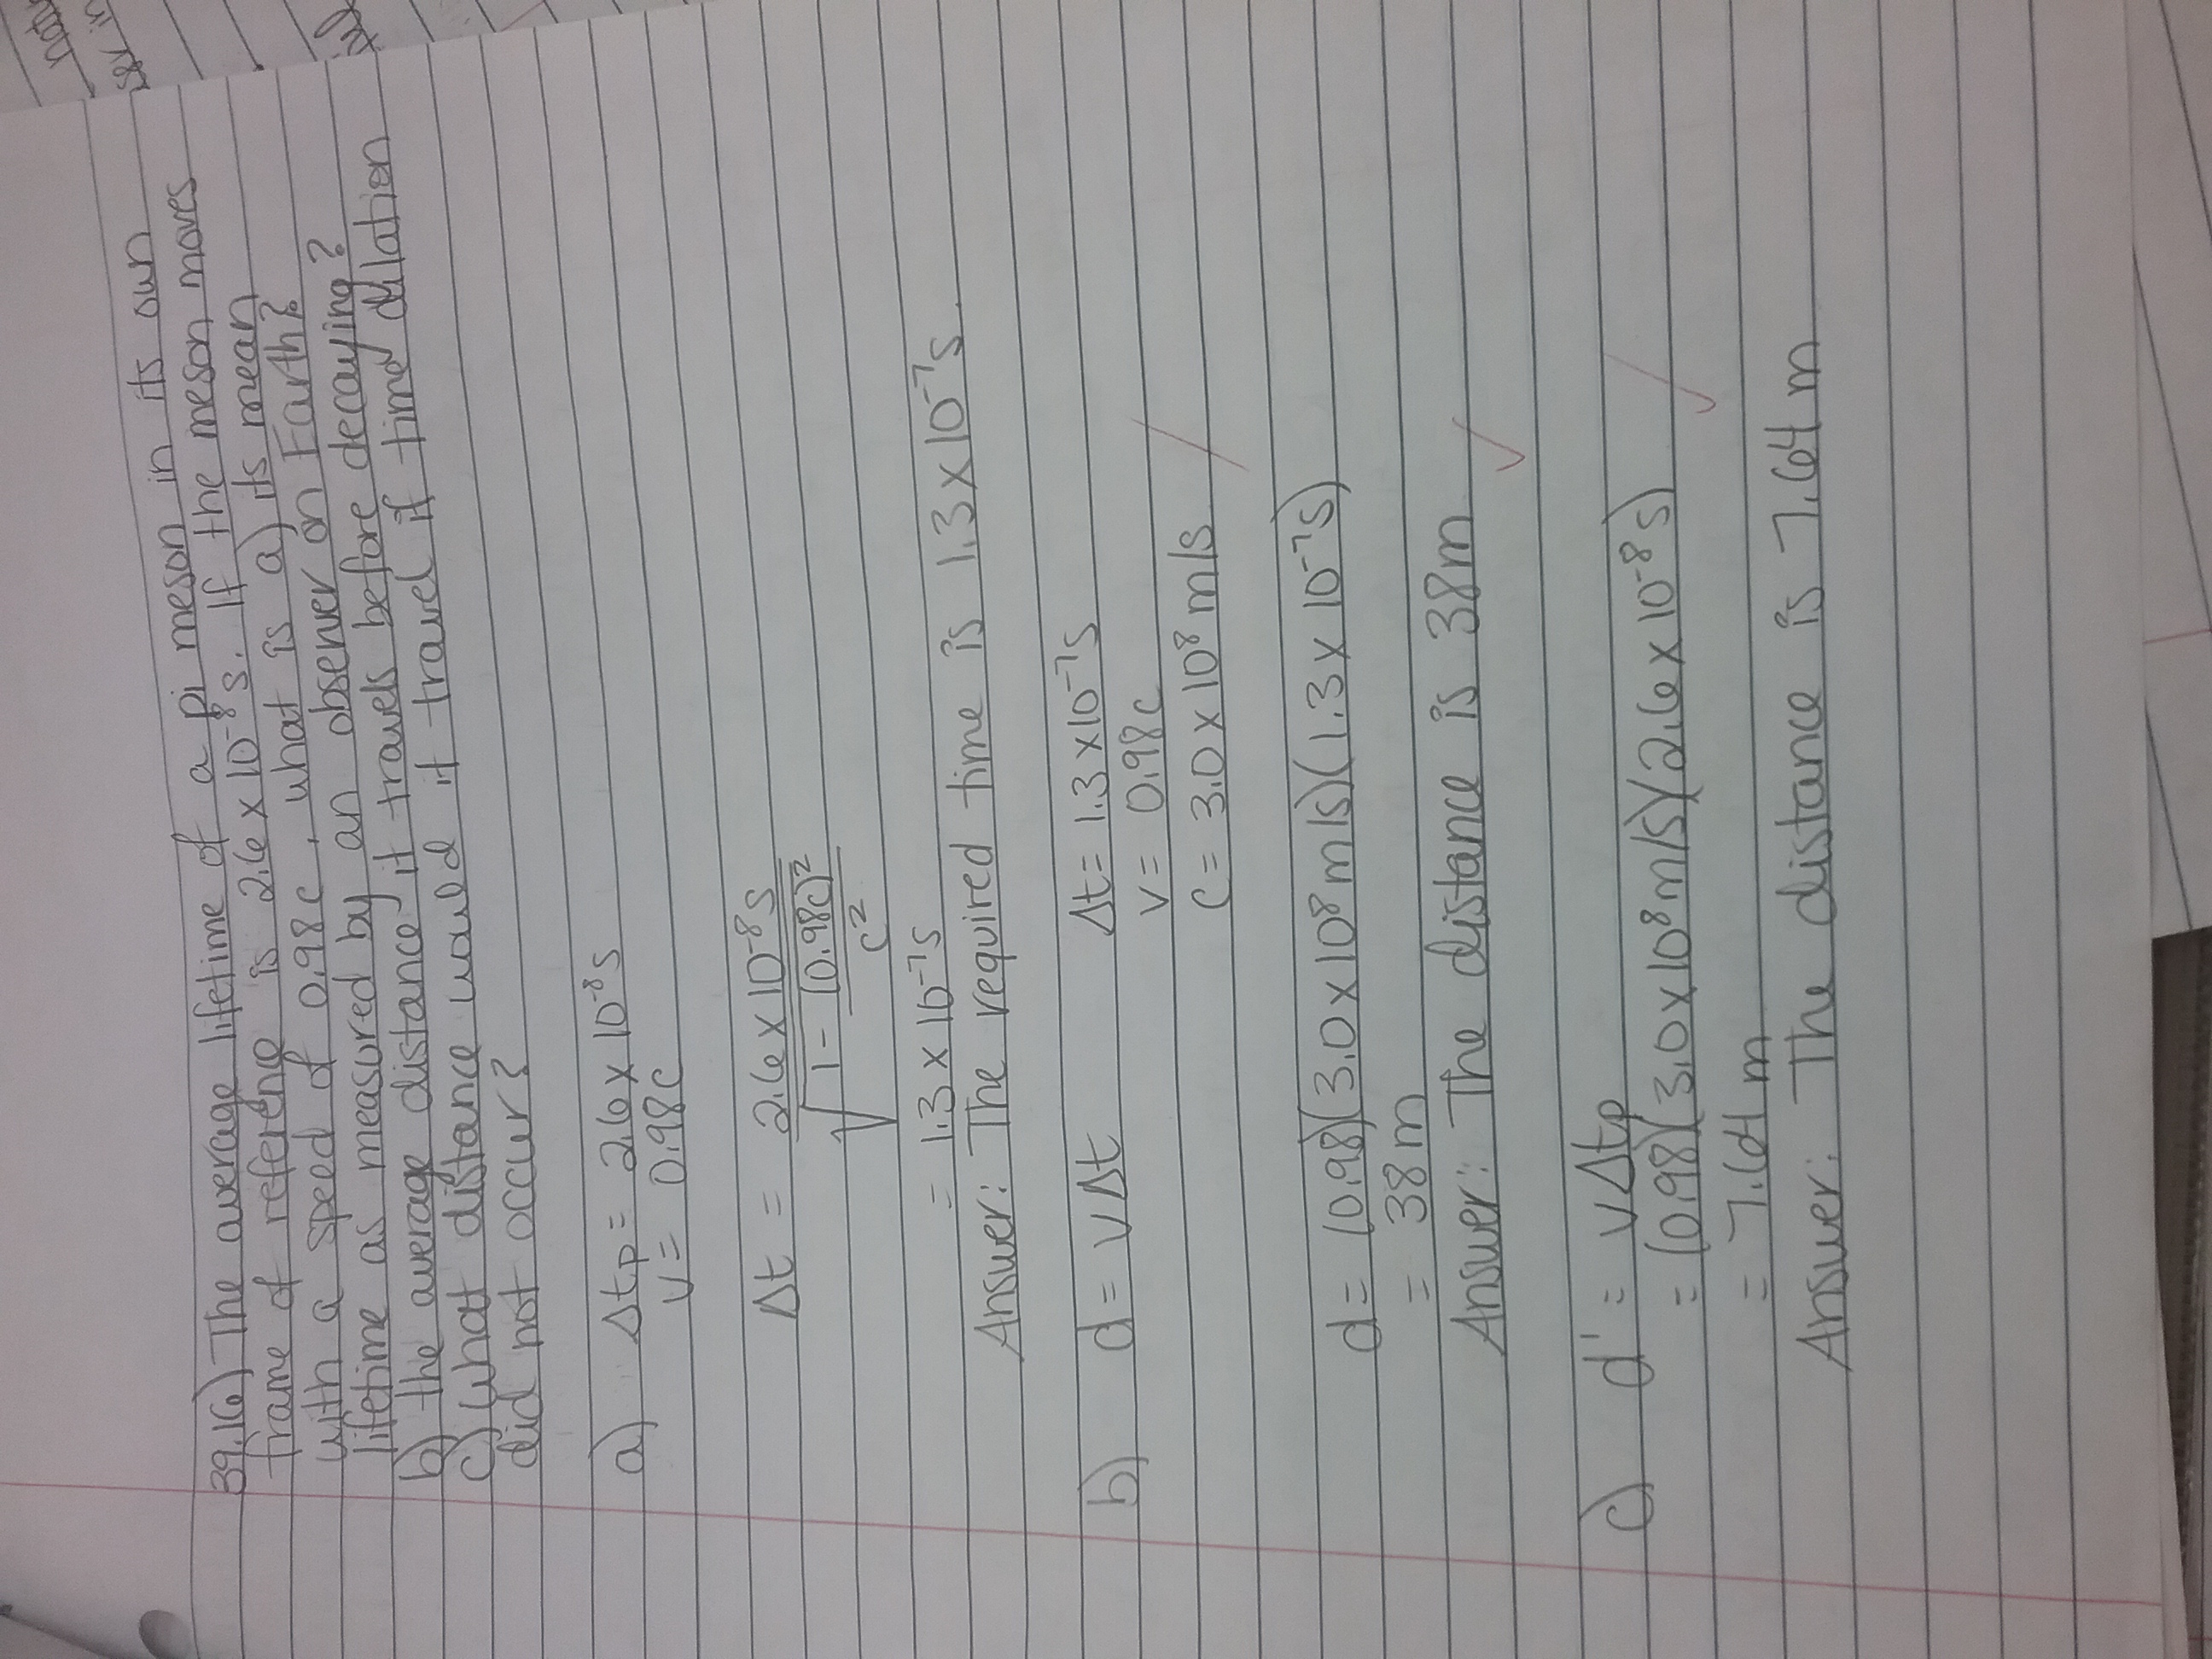 39.16) The average lifetime of a pi meson in its own
frame of reference is 2.6 x 10⁻⁸ s. If the meson moves
with a speed of 0.98c, what is a) its mean
lifetime as measured by an observer on Earth?
b) the average distance it travels before decaying?
c) What distance would it travel if time dilation
did not occur?
a) Δtp = 2.6 x 10⁻⁸ s
v = 0.98c
Δt = 2.6 x 10⁻⁸ s
√1 - (0.98c)²
c²
= 1.3 x 10⁻⁷ s
Answer: The required time is 1.3 x 10⁻⁷ s.
b) d = vΔt Δt = 1.3 x 10⁻⁷ s
v = 0.98c
c = 3.0 x 10⁸ m/s
d = (0.98)(3.0 x 10⁸ m/s)(1.3 x 10⁻⁷ s)
= 38 m
Answer: The distance is 38 m
c) d' = vΔtp
= (0.98)(3.0 x 10⁸ m/s)(2.6 x 10⁻⁸ s)
= 7.64 m
Answer: The distance is 7.64 m